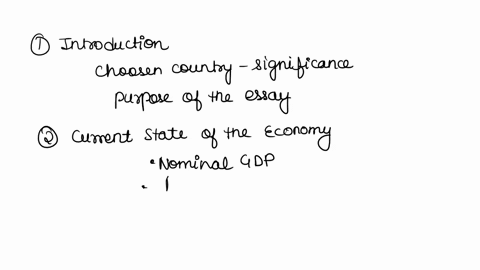 ① Introduction
Choosen country - significance
purpose of the essay
② Current State of the Economy
• Nominal GDP
•